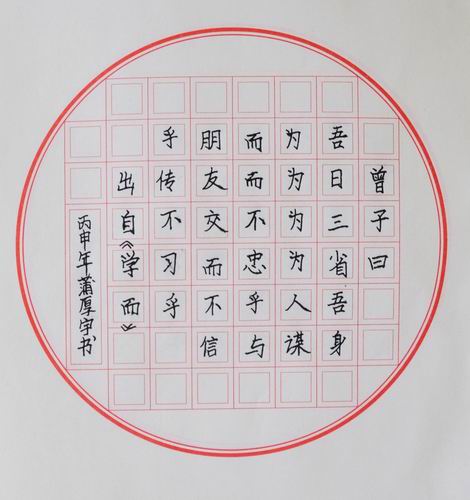 曾子曰
吾日三省吾身
为为为为人谋
而而不忠乎与
朋友交而不信
乎传不习乎
出自《学而》
丙申年蒲厚宇书